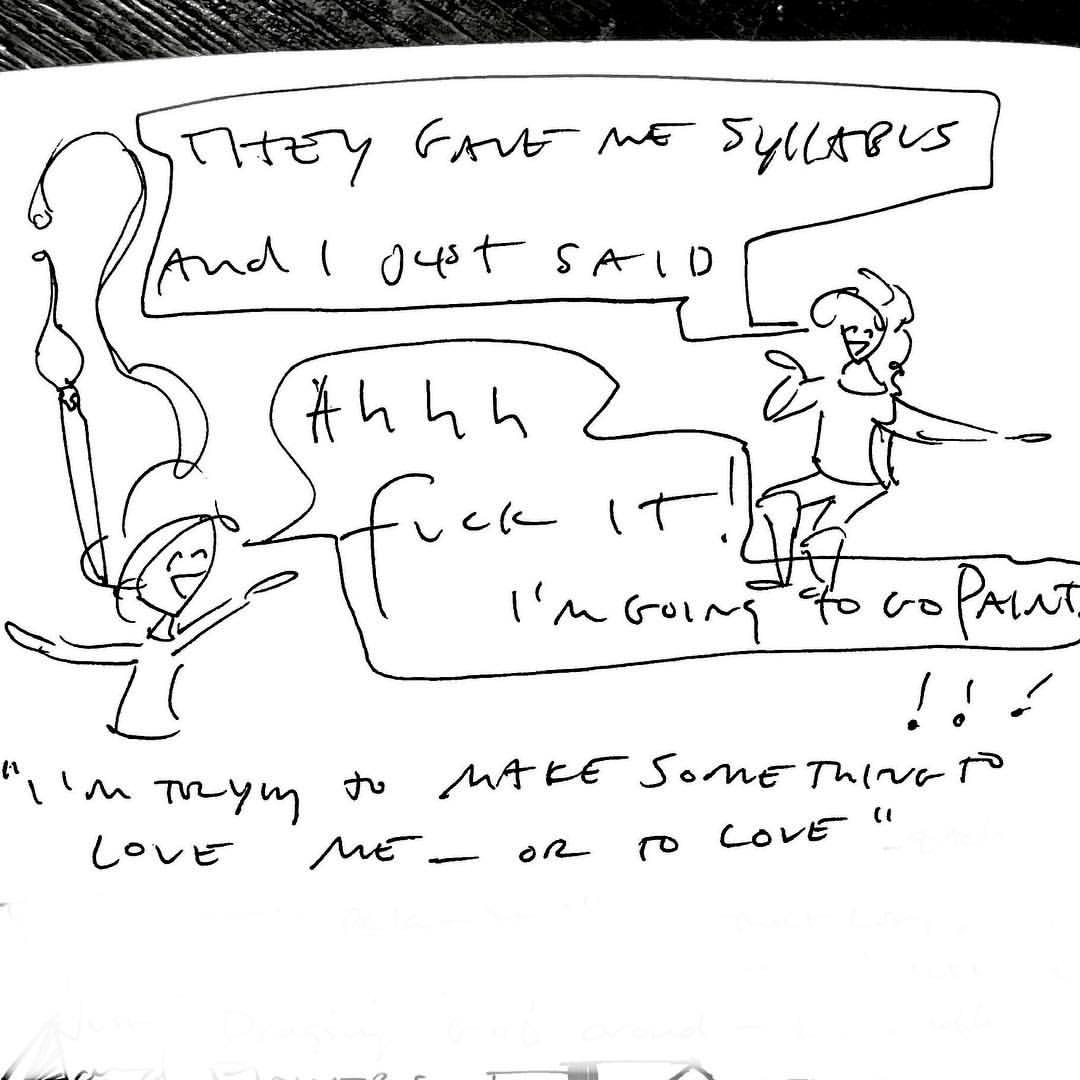 THEY GAVE ME SYLLABUS
And I JUST SAID
Ahhh
fuck IT!
I'm GOING to GO PAINT
!!!
"I'm TRYING to MAKE SOMETHING TO
LOVE ME — OR TO LOVE"
Dragging around